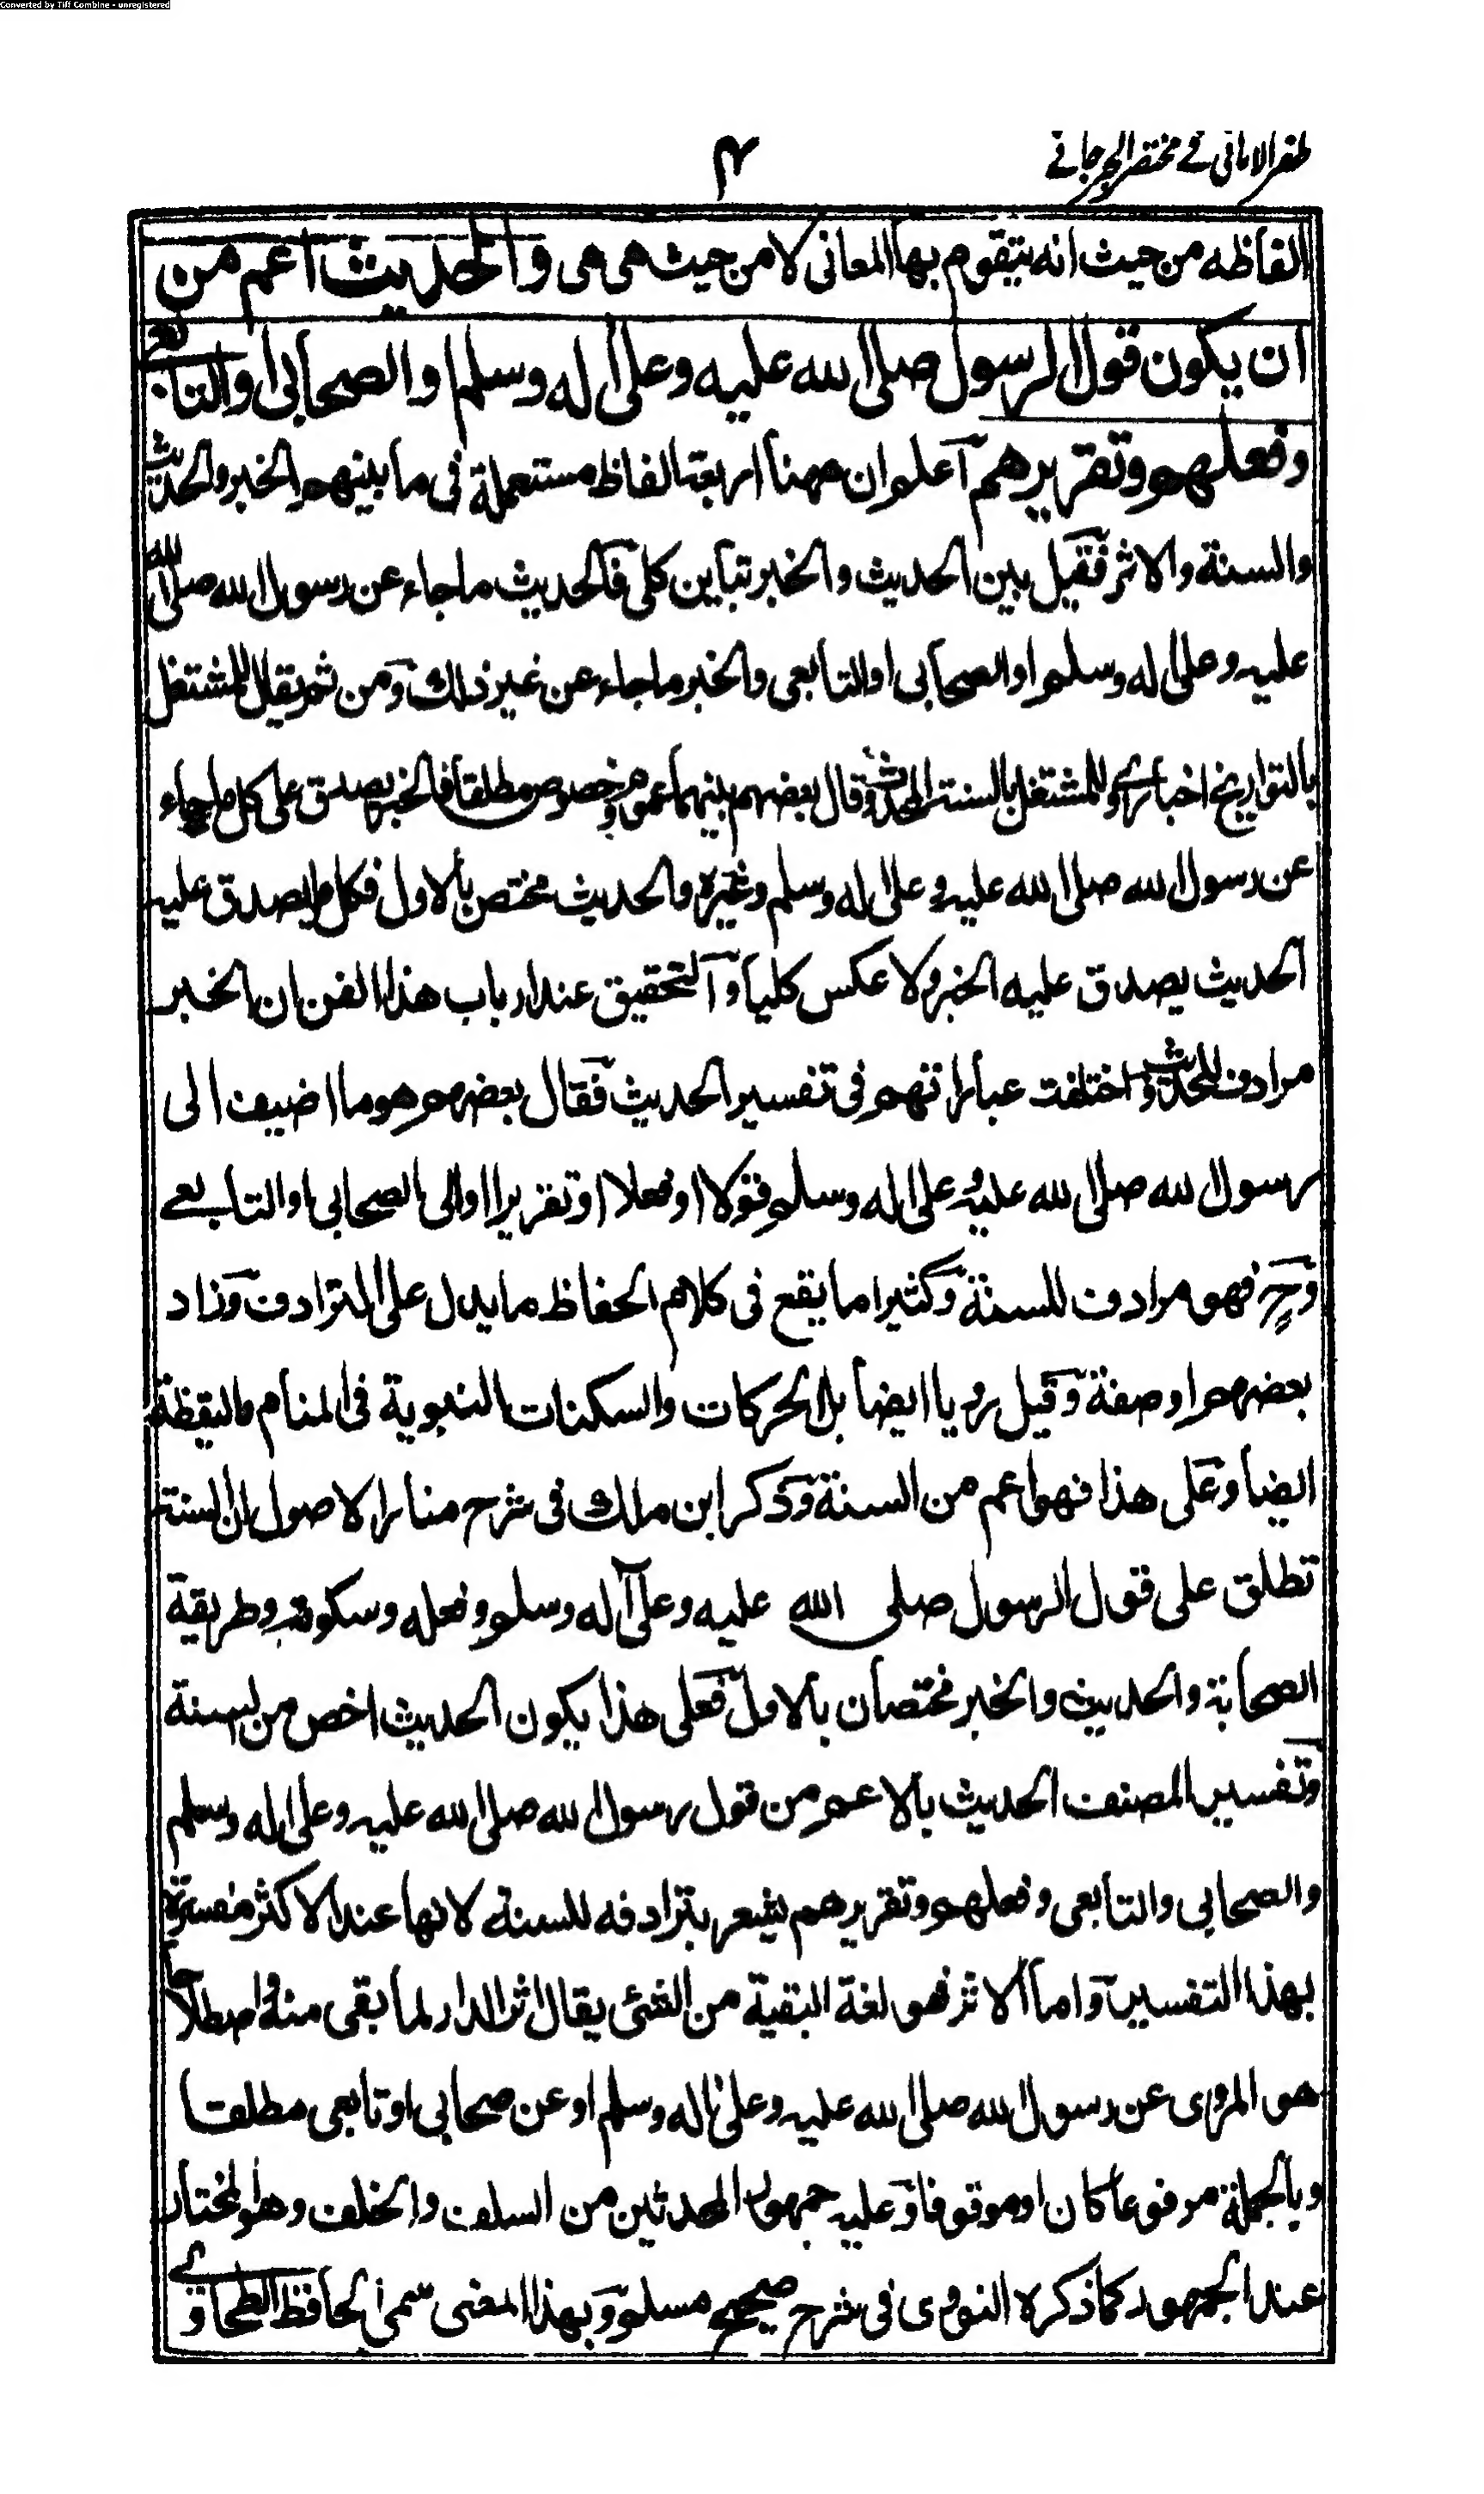 Converted by Tiff Combine - unregistered
ظفر الامانی فے مختصر الجرجانے
۴
الفاظه من حيث انه يتقوم بها المعانى لا من حيث هى هى والحديث اعم من
ان يكون قول الرسول صلى الله عليه وعلى اله وسلم او الصحابى او التابعى
وفعلهم وتقريرهم آعلم ان ههنا اربعة الفاظ مستعملة فى ما بينهم الخبر والحديث
والسنة والاثر فقيل بين الحديث والخبر تباين كلى فالحديث ما جاء عن رسول الله صلى الله
عليه وعلى اله وسلم او الصحابى او التابعى والخبر ما جاء عن غير ذلك ومن ثم يقال للمشتغل
بالتواريخ اخبارى وللمشتغل بالسنة المحدث وقال بعضهم بينهما عموم وخصوص مطلقا فالخبر يصدق على كل ما جاء
عن رسول الله صلى الله عليه وعلى اله وسلم وغيره والحديث مختص بالاول فكل ما يصدق عليه
الحديث يصدق عليه الخبر ولا عكس كليا وآلتحقيق عند ارباب هذا الفن ان الخبر
مرادف للحديث واختلفت عباراتهم فى تفسير الحديث فقال بعضهم هو ما اضيف الى
رسول الله صلى الله عليه وعلى اله وسلم قولا او فعلا او تقريرا او الى الصحابى او التابعے
وح فهو مرادف للسنة وكثيرا ما يقع فى كلام الحفاظ ما يدل على الترادف وزاد
بعضهم او صفة وقيل رويا ايضا بل الحركات والسكنات النبوية فى المنام واليقظة
ايضا وعلى هذا فهو اعم من السنة وذكر ابن ملك فى شرح منار الاصول ان السنة
تطلق على قول الرسول صلى الله عليه وعلى آله وسلم وفعله وسكوته وطريقة
الصحابة والحديث والخبر مختصان بالاول فعلى هذا يكون الحديث اخص من السنة
وتفسير المصنف الحديث بالاعم من قول رسول الله صلى الله عليه وعلى اله وسلم
والصحابى والتابعى وفعلهم وتقريرهم يشعر بترادفه للسنة لانها عند الاكثر مفسرة
بهذا التفسير وآما الاثر فهو لغة البقية من الشئ يقال اثر الدار لما بقى منها واصطلاحا
هو المروى عن رسول الله صلى الله عليه وعلى اله وسلم او عن صحابى او تابعى مطلقا
وبالجملة مرفوعا كان او موقوفا وعليه جمهور المحدثين من السلف والخلف وهو المختار
عند الجمهور كما ذكره النووى فى شرح صحيح مسلم وبهذا المعنى سمى الحافظ الطحاوے